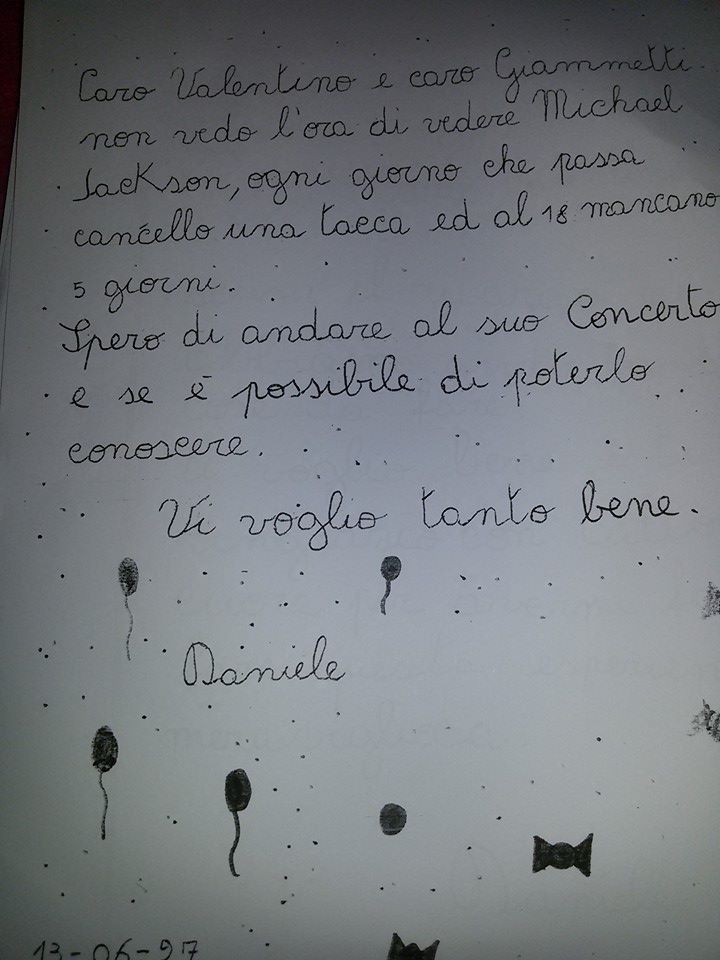 Caro Valentino e caro Giammetti
non vedo l'ora di vedere Michael
Jackson, ogni giorno che passa
cancello una tacca ed al 18 mancano
5 giorni.
Spero di andare al suo Concerto
e se è possibile di poterlo
conoscere.
Vi voglio tanto bene.
Daniele
13-06-97